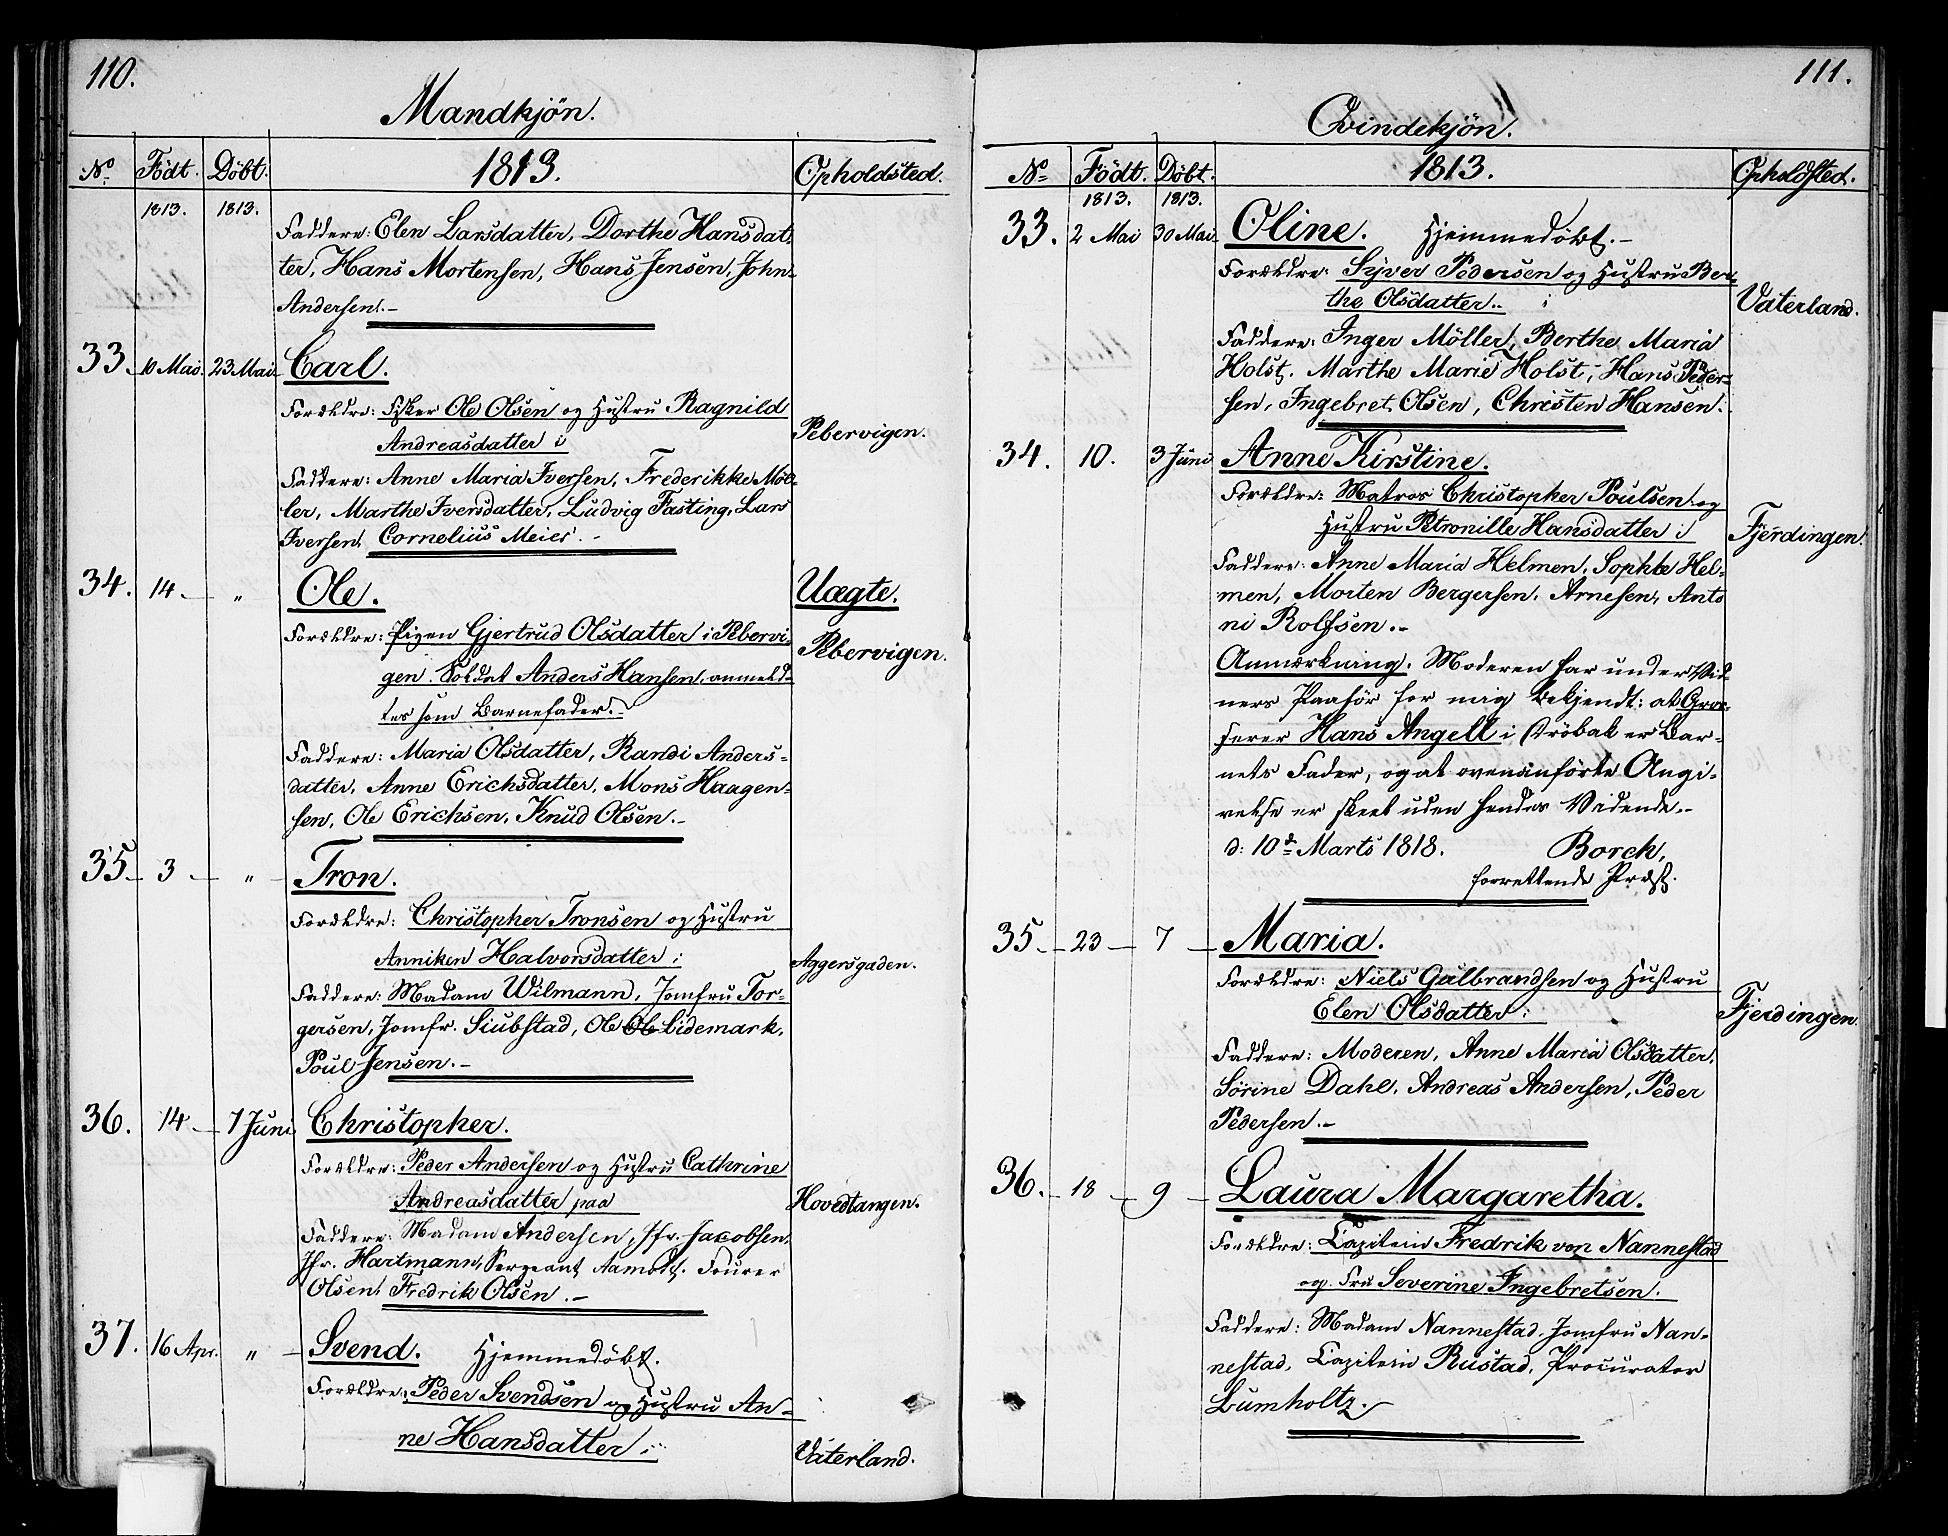 110.
Mandkjön.
No Födt. Döbt. 1813. Opholdsted.
1813. 1813.
Faddere: Elen Larsdatter, Dorthe Hansdat-
ter, Hans Mortensen, Hans Jensen, John
Andersen.-
33. 10 Mai. 23 Mai Carl.
Forældre: Fisker Ole Olsen og Hustru Ragnild
Andreasdatter i
Pebervigen.
Faddere: Anne Maria Iversen, Frederikke Möl-
ler, Marthe Iversdatter, Ludvig Fasting, Lars
Iversen, Cornelius Meier.-
34. 14 - " Ole. Uægte.
Forældre: Pigen Gjertrud Olsdatter i Pebervi-
gen. Soldat Anders Hansen, anmeld-
tes som Barnefader.-
Pebervigen.
Faddere: Maria Olsdatter, Randi Anders-
datter, Anne Erichsdatter, Mons Haagen-
sen, Ole Erichsen, Knud Olsen.-
35 - 3 - " - Tron.
Forældre: Christopher Tronsen og Hustru
Anniken Halvorsdatter i
Aggersgaden.
Faddere: Madam Wilmann, Jomfru Tor-
gersen, Jomfr. Siubstad, Ole Ole Lidemark,
Poul Jensen.-
36. 14 - 7 Juni Christopher.
Forældre: Peder Andersen og Hustru Cathrine
Andreasdatter paa
Hovedtangen.
Faddere: Madam Andersen, Jfr. Jacobsen,
Jfr. Hartmann, Sergeant Aamodt. Fourer
Olsen, Fredrik Olsen.-
37. 16 Apr. " - Svend. Hjemmedöbt.
Forældre: Peder Svendsen og Hustru An-
ne Hansdatter i
Vaterland.
111.
Qvindekjön.
No Födt. Döbt. 1813. Opholdsted.
1813. 1813.
33. 2 Mai 30 Mai Oline. Hjemmedöbt.-
Forældre: Syver Pedersen og Hustru Ber-
the Olsdatter.. i
Vaterland.
Faddere: Inger Möller, Berthe Maria
Holst, Marthe Marie Holst, Hans Peder-
sen, Ingebret Olsen, Christen Hansen.
34. 10. 3 Juni Anne Kirstine.
Forældre: Matros Christopher Poulsen og
Hustru Petronille Hansdatter i
Fjerdingen.
Faddere: Anne Maria Helmen, Sophie Hel-
men, Morten Bergersen, Arnesen, Anto
ni Rolfsen.-
Anmærkning. Moderen har under Vid-
ners Paahör for mig bekjendt: at Gros-
serer Hans Angell i Dröbak er Bar-
nets Fader, og at ovenanförte Angi-
velse er skeet uden hendes Vidende.-
d: 10d Marts 1818. Borch,
forrettende Præst.
35 - 23 - 7 - Maria.
Forældre: Niels Gulbrandsen og Hustru
Elen Olsdatter i
Fjerdingen.
Faddere: Moderen, Anne Maria Olsdatter,
Sörine Dahl, Andreas Andersen, Peder
Pedersen.-
36. - 18 - 9 - Laura Margaretha.
Forældre: Capitein Fredrik von Nannestad
og Fru Severine Ingebretsen.
Faddere: Madam Nannestad, Jomfru Nan-
nestad, Capitein Rustad, Procurator
Lumholtz.-